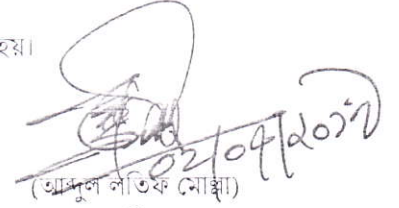 হয়।
০২/০৭/২০১৭
(আব্দুল লতিফ মোল্লা)